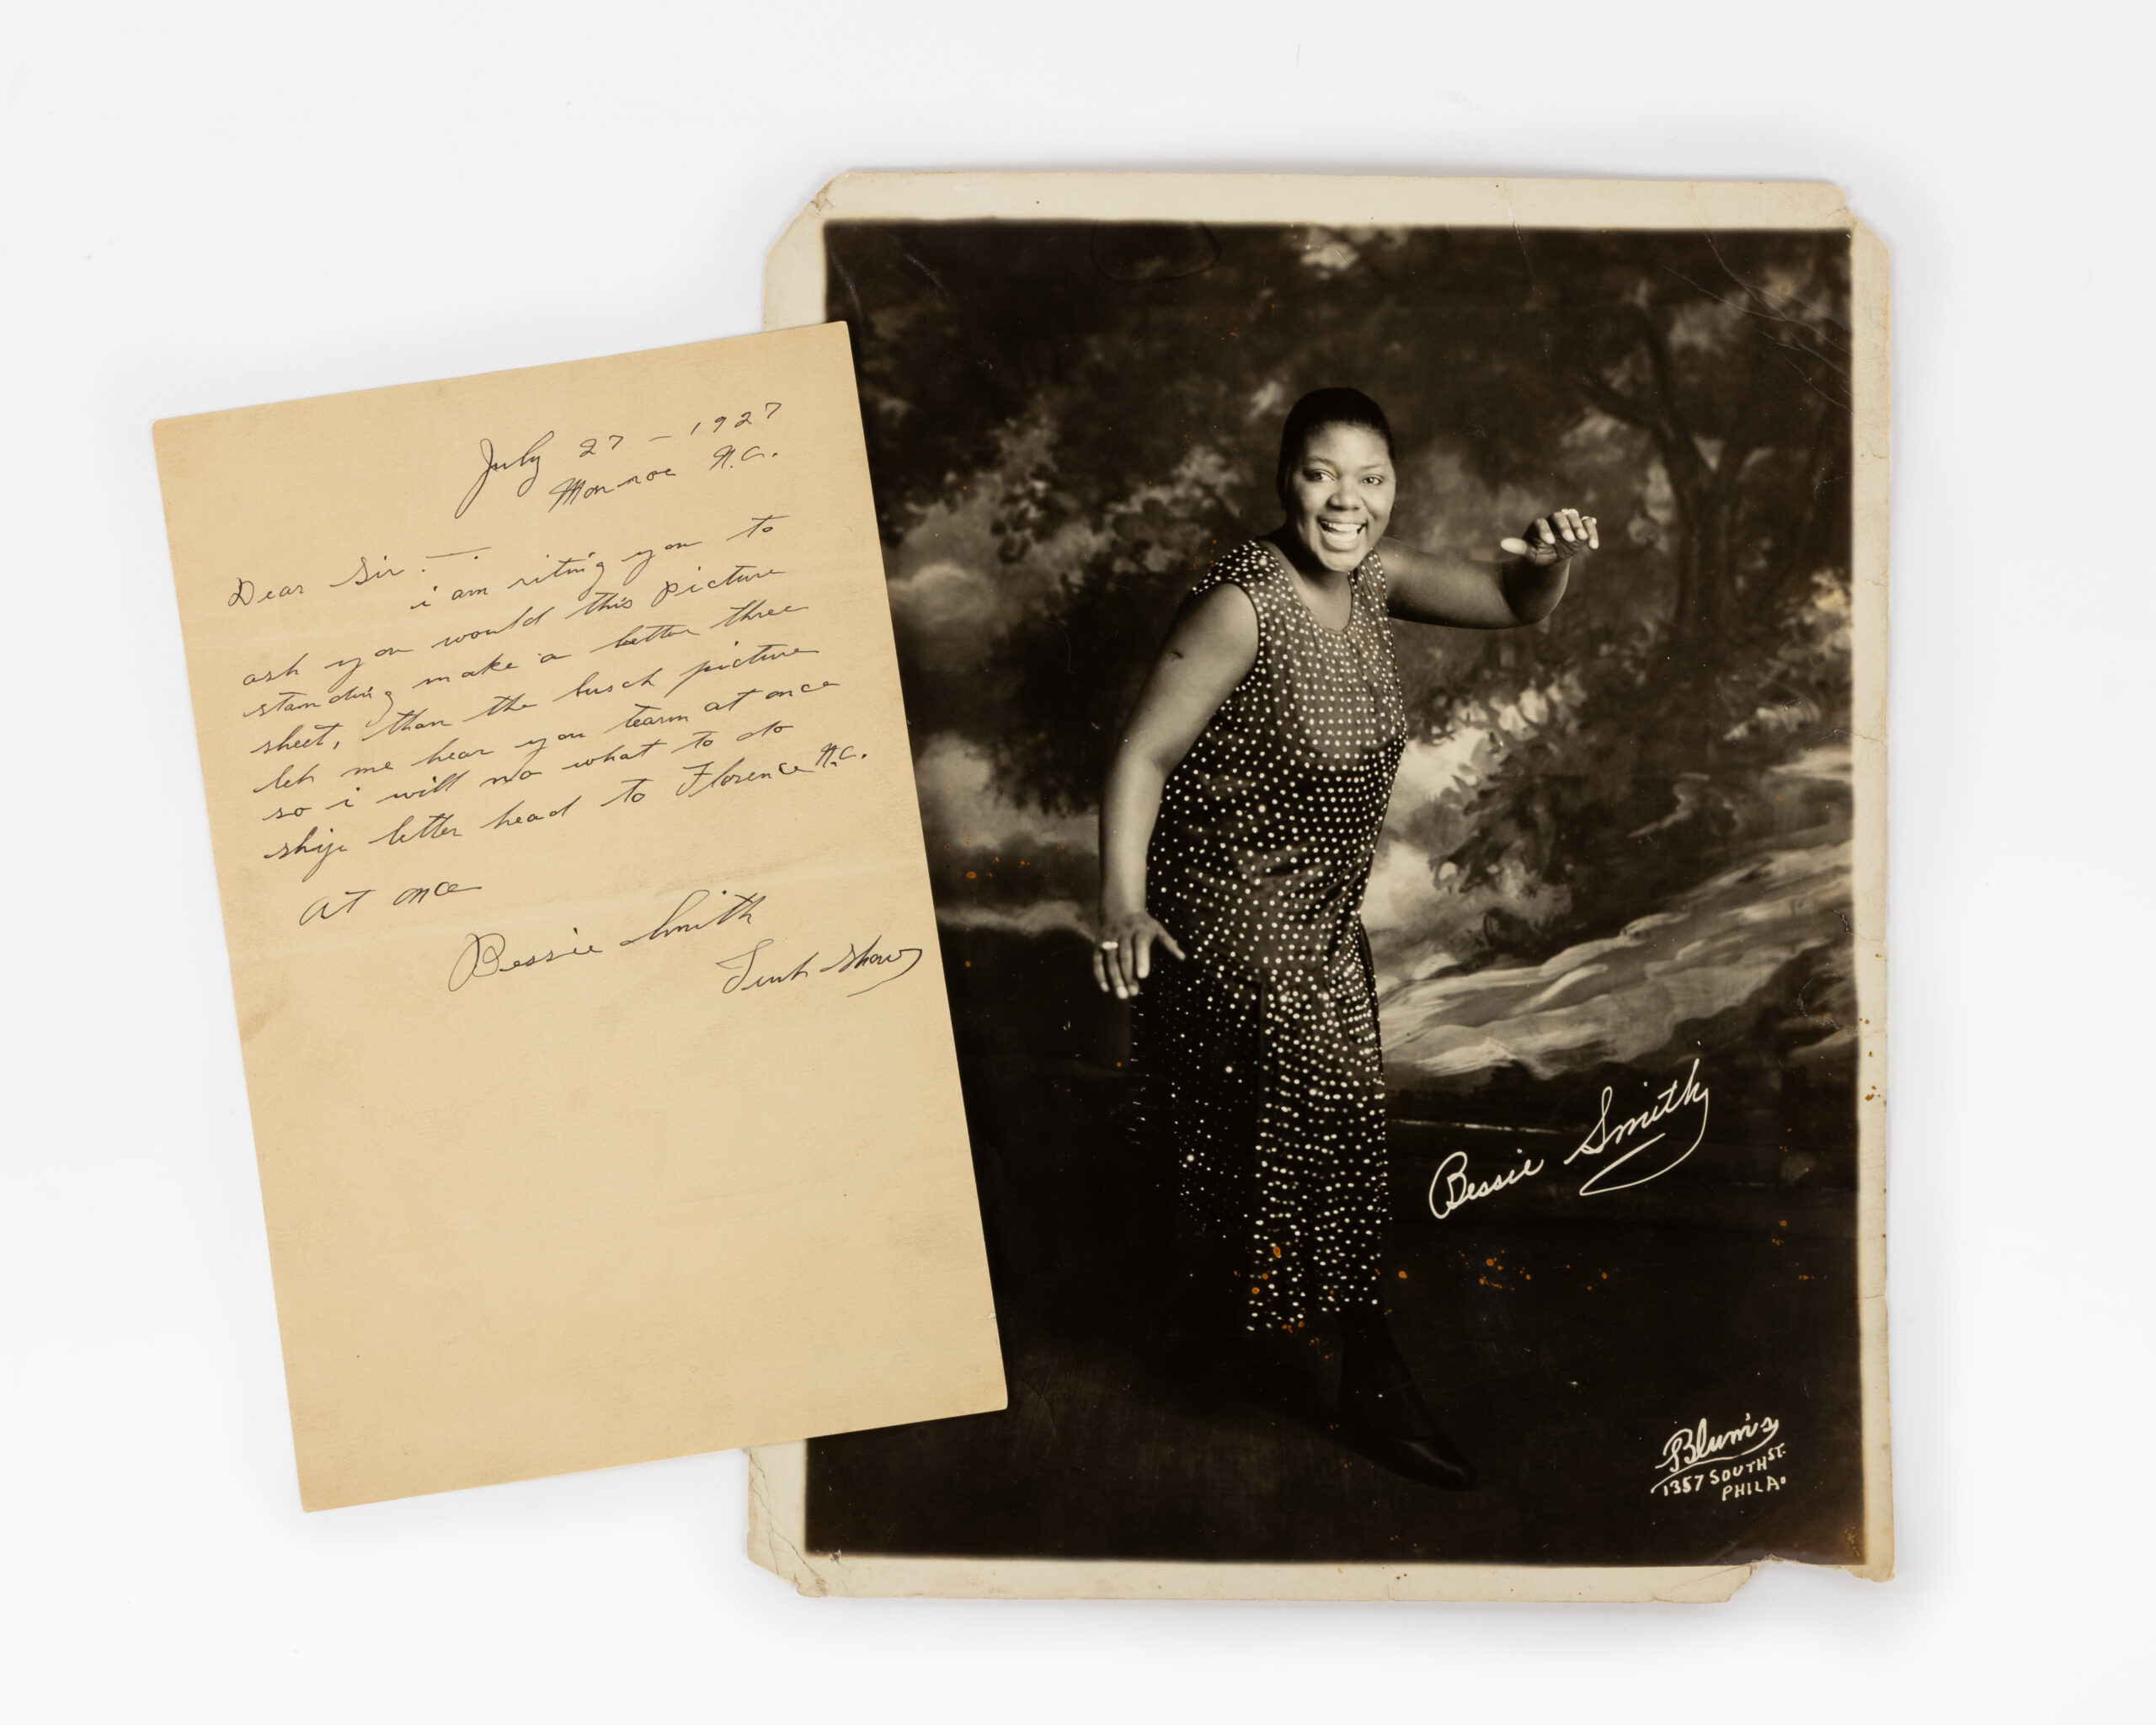 July 27 - 1927
Monroe N.C.
Dear Sir. —.
i am riting you to
ask you would this picture
standing make a better three
sheet, than the busch picture
let me hear you tearm at once
so i will no what to do
ship letter head to Florence N.C.
at once
Bessie Smith
Tent Show
Bessie Smith
Blum's
1357 SOUTH ST.
PHILA.